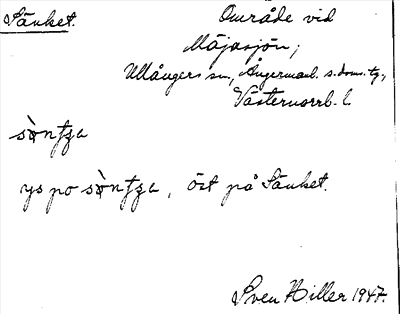 Sänket.
Område vid
Mäjasjön;
Ullångers sn, Ångermanl. s. doms. tg.,
Västernorrl. l
ys po
, öst på Sänket.
Sven Hiller 1947.